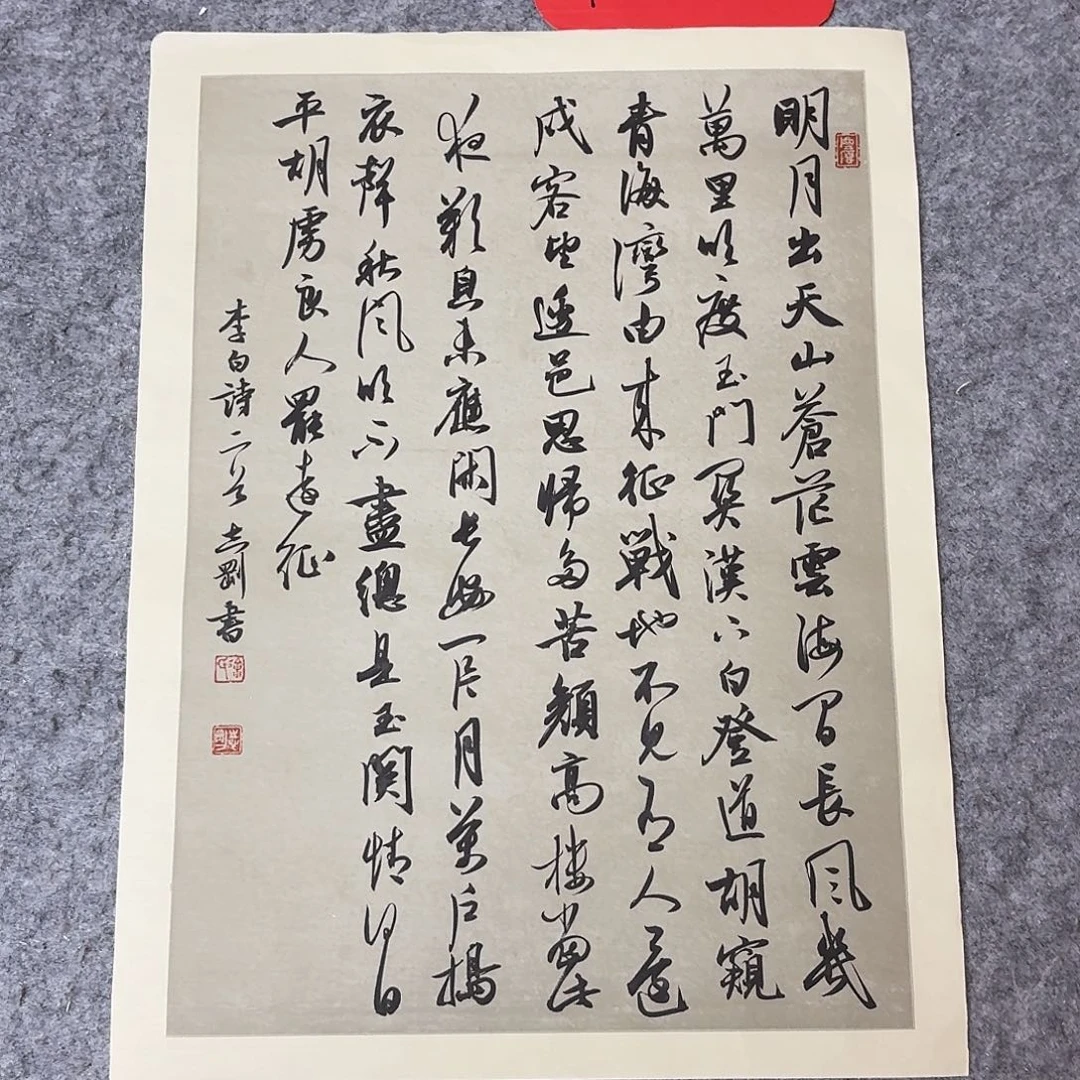 明月出天山蒼茫雲海間長風幾
萬里吹度玉門關漢下白登道胡窺
青海灣由來征戰地不見有人還
戍客望邊邑思歸多苦顏高樓當此
夜歎息未應閑長安一片月萬戶搗
衣聲秋風吹不盡總是玉關情何日
平胡虜良人罷遠征
李白詩二首志剛書